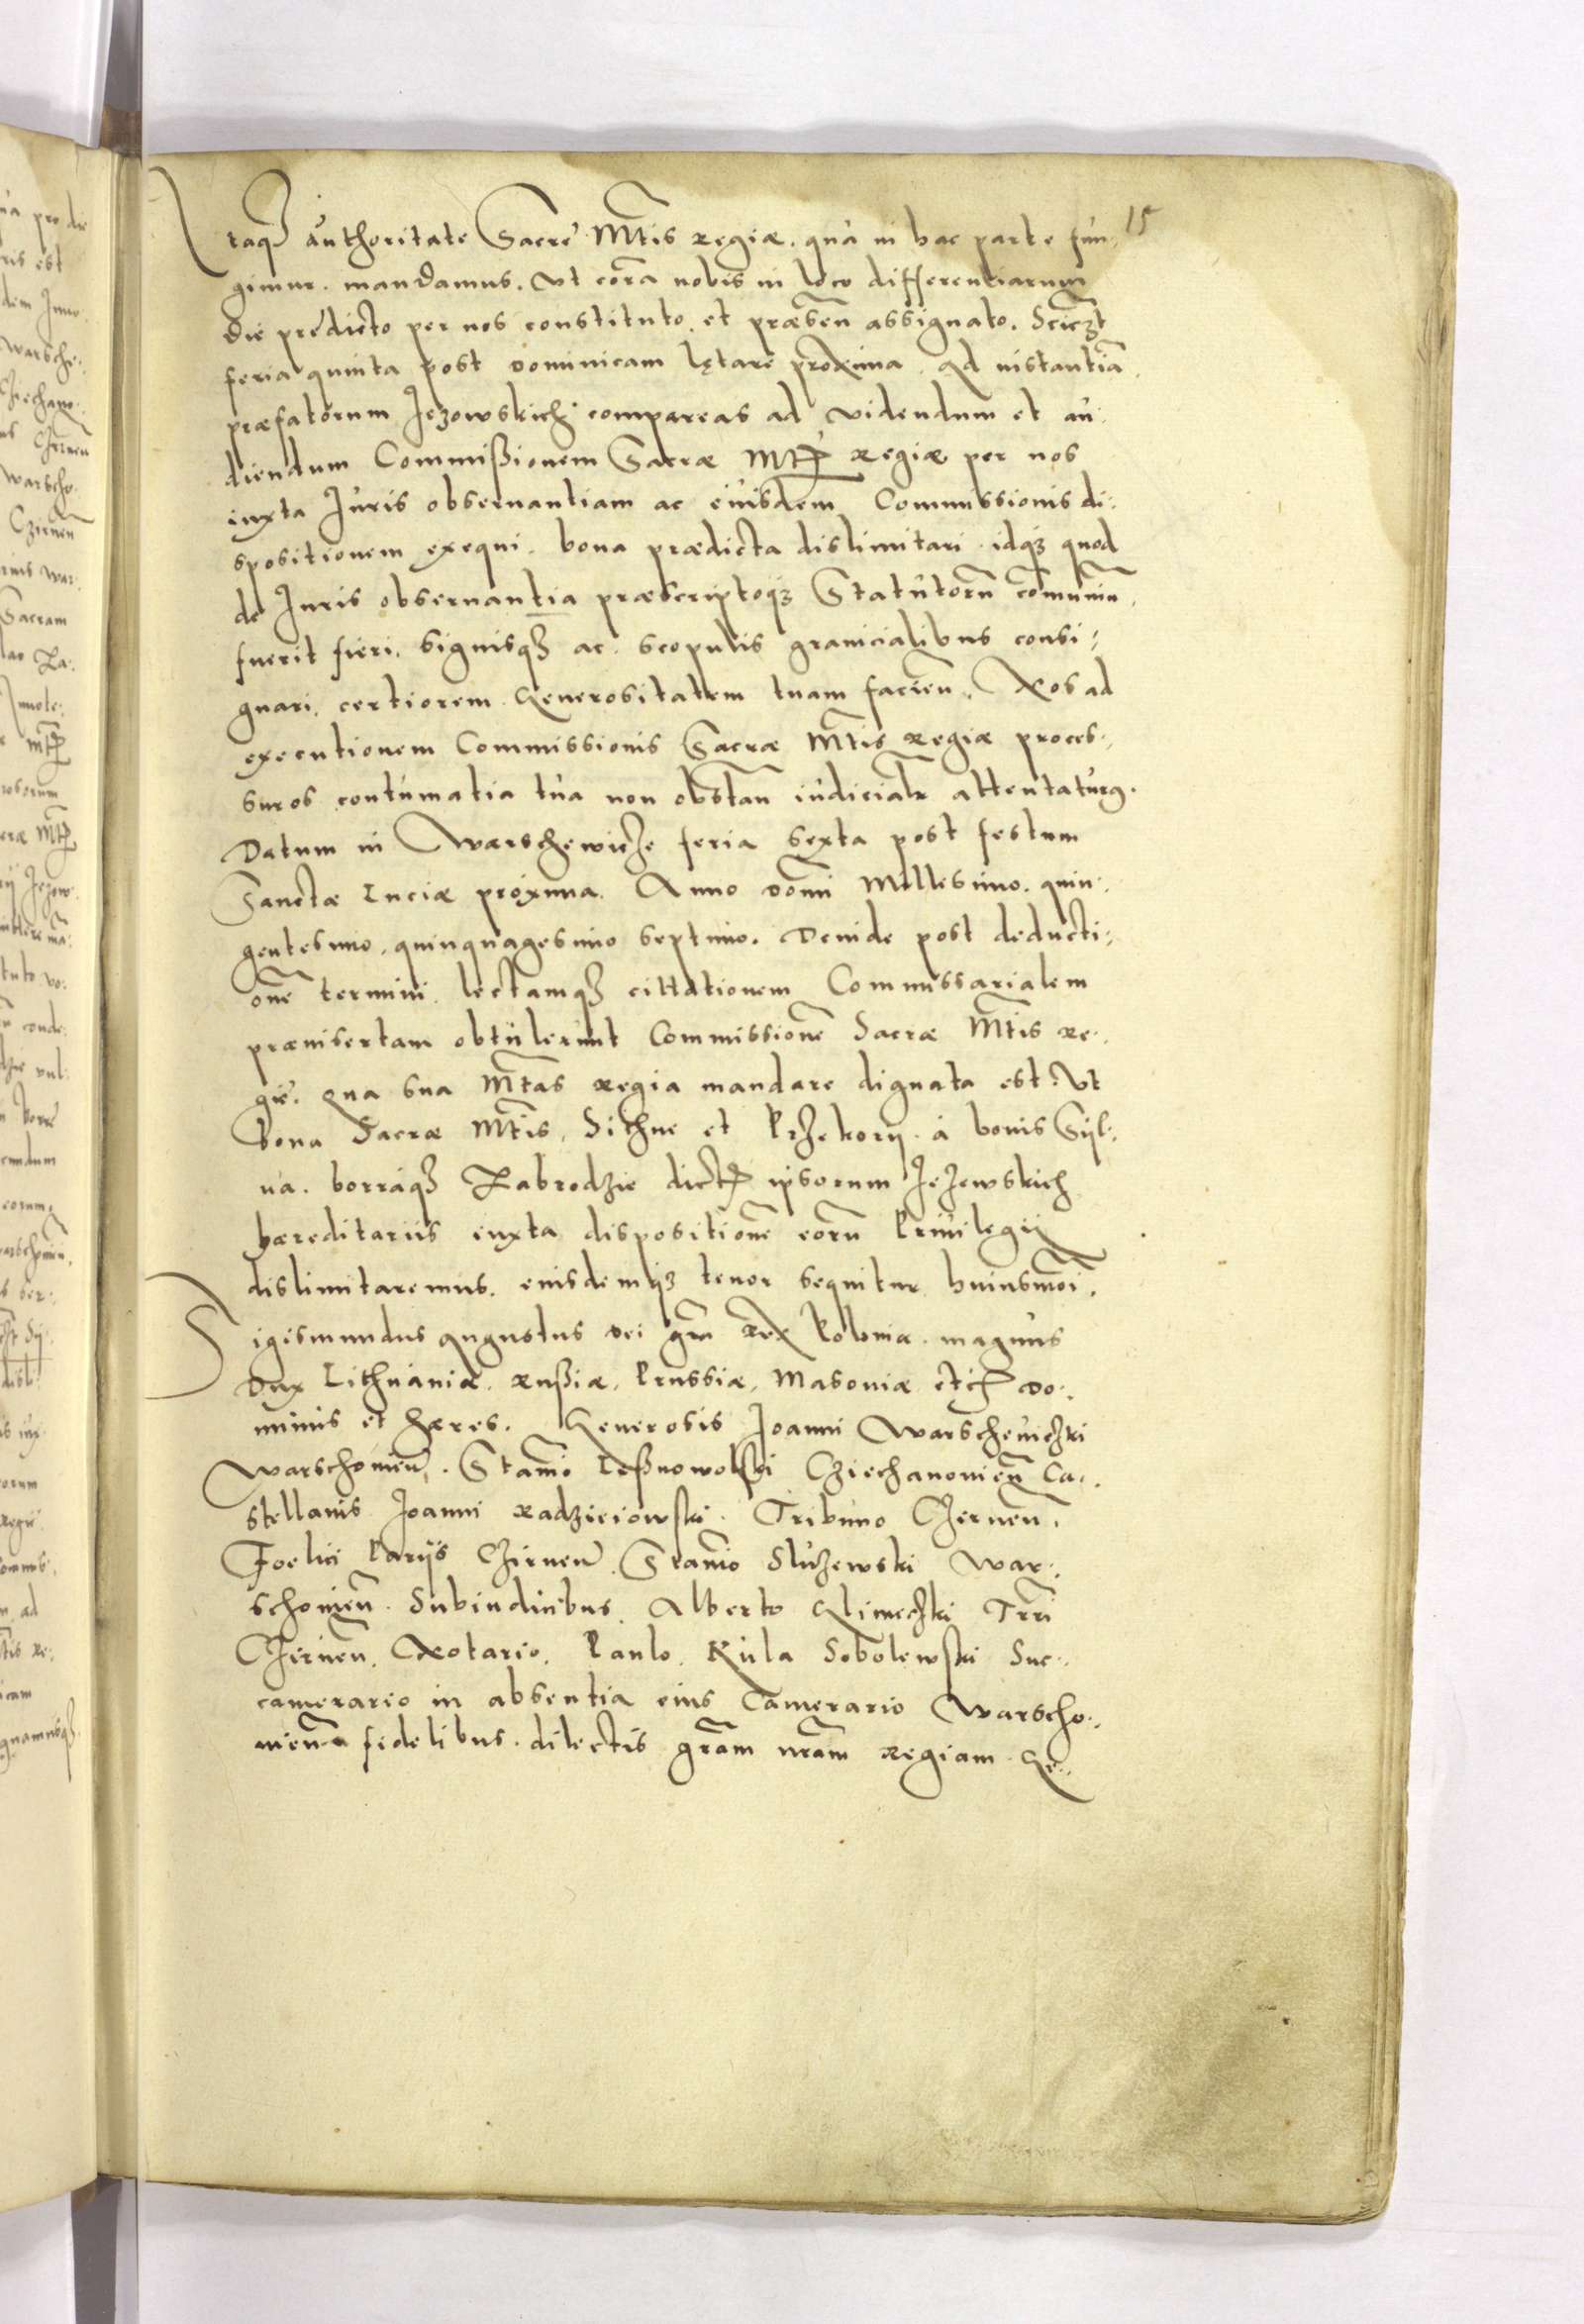 15
Itaqꝫ authoritate Sacre Mt̃is Regiæ. qua in hac parte fun¬
gimur. mandamus. Vt corã nobis in loco differentiarum
die prędicto per nos constituto. et præsẽn assignato. Scicꝫt
feria quinta post dominicam lętare proxima. Ad instantiã
præfatorum Jezowskich compareas ad videndum et au¬
diendum Commißionem Sacræ Mtꝭ Regiæ per nos
iuxta Juris obseruantiam ac eiusdem Commissionis di¬
spositionem exequi. bona prædicta dislimitari. idqꝫ quod
de Juris obseruantia præscriptoqꝫ Statutorũ com̃uniũ
fuerit fieri. signisqꝫ ac scopulis granicialibus consi¬
gnari. certiorem Generositatem tuam facieñ. Nos ad
executionem Commissionis Sacræ Mt̃is Regiæ proces¬
suros contumatia tua non obstañ iudicialr̃ attentaturꝰ.
Datum in Warschewicze feria sexta post festum
Sanctæ Luciæ proxima. Anno domĩ Millesimo. quin¬
gentesimo. quinquagesimo septimo. Deinde post deducti¬
onẽ termini. lectamqꝫ cittationem Commissarialem
præinsertam obtulerunt Commissionẽ Sacræ Mt̃is Re¬
gię. qua sua Mt̃as Regia mandare dignata est. Vt
bona Sacræ Mt̃is. Sithne et Przekory. à bonis Syl¬
ua. borraqꝫ Zabrodzie dictꝭ ipsorum Jezewskich
hæreditariis iuxta dispositionẽ eorũ Priuilegij
dislimitaremus. eiusdemqꝫ tenor sequitur huiusmõi.
Sigismundus Augustus dei grã Rex Poloniæ. magnus
Dux Lithuaniæ. Rußiæ. Prussiæ. Masouiæ etcꝭ do¬
minus et hæres. Generosis Joanni Warscheuiczki
Warschouieñ. Stanĩo Leßnowolski Cziechanouieñ Ca¬
stellanis Joanni Radzieiowski. Tribuno Czerneñ.
Foelici Parijs Czirneñ. Stanĩo Sluzewski War¬
schouieñ. Subiudicibus. Alberto Glinieczki Trrĩ
Czirneñ. Notario. Paulo. Kula Sobolewski Suc¬
camerario in absentia eius Camerario Warscho¬
uieñ fidelibus. dilectis grãm nrãm Regiam. Ge¬